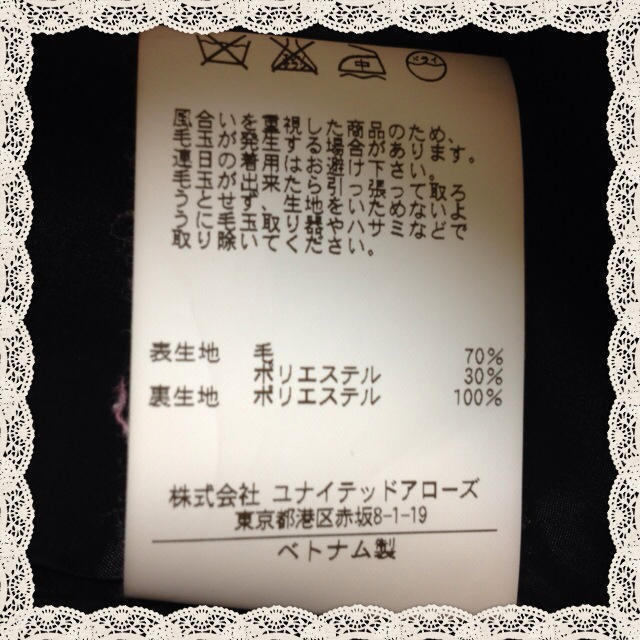 中 ドライ
風合いを重視した商品のため、
毛玉が発生する場合があります。
連日の着用はお避け下さい。
毛玉が出来たら引っ張って取ろ
うとせず、生地をいためないよ
うに毛玉取り器やハサミなどで
取り除いてください。
表生地 毛 70%
ポリエステル 30%
裏生地 ポリエステル 100%
株式会社 ユナイテッドアローズ
東京都港区赤坂8-1-19
ベトナム製